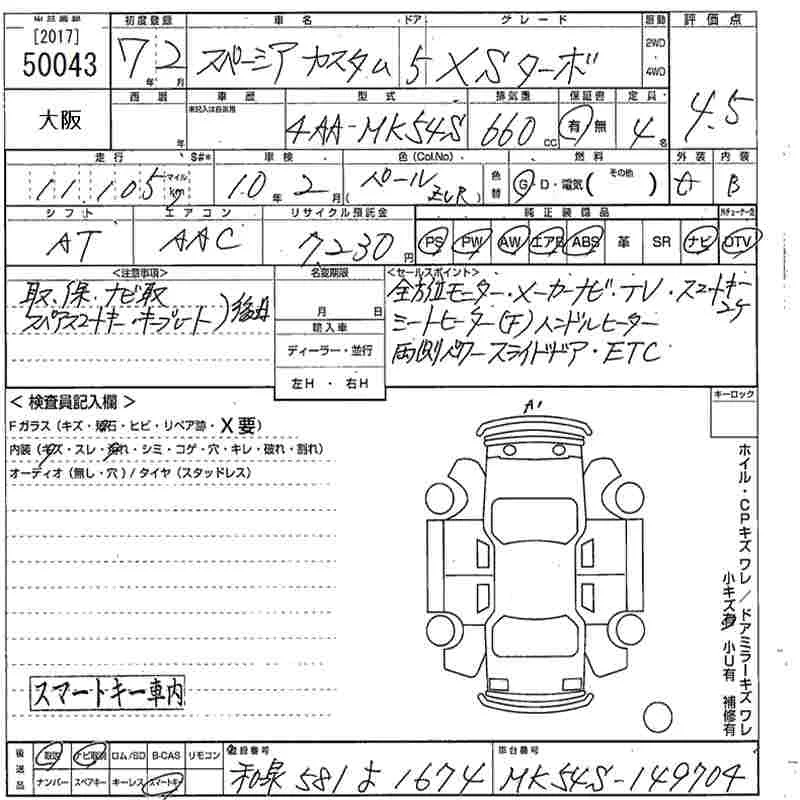 [2017]
50043
大阪
初度登録 車名 ドア グレード 駆動 評価点
7年 2月 スペーシア カスタム 5 XSターボ 2WD・4WD
4.5
西暦 車歴 型式 排気量 保証書 定員
年 未記入は自家用 4AA-MK54S 660cc 有・無 4名
走行 S#* 車検 色(Col.No) 色替 燃料 外装 内装
11,105 マイル km 10年 2月 パール (ZVR) G・D・電気( その他 ) B
シフト エアコン リサイクル預託金 純正装備品
AT AAC 7,230円 PS PW AW エアB ABS 革 SR ナビ DTV
<注意事項> 名変期限 <セールスポイント>
取・保・ナビ取
スペアスマートキー・キープレート)後日
月 日
輸入車
ディーラー・並行
左H・右H
全方位モニター・メーカーナビ・TV・スマートキー2ケ
シートヒーター(F)ハンドルヒーター
両側パワースライドドア・ETC
<検査員記入欄>
Fガラス(キズ・飛石・ヒビ・リペア跡・X要)
内装(キズ・スレ・汚れ・シミ・コゲ・穴・キレ・破れ・割れ)
オーディオ(無し・穴)/タイヤ(スタッドレス)
スマートキー車内
A1
キーロック
ホイル・CPキズ ワレ/ドアミラーキズ ワレ
小キズ有 小U有 補修有
後送品 取説 ナビ取説 ロム/SD B-CAS リモコン
ナンバー スペアキー キーレス スマートキー
登録番号 車台番号
和泉 581 よ 1674 MK54S-149704